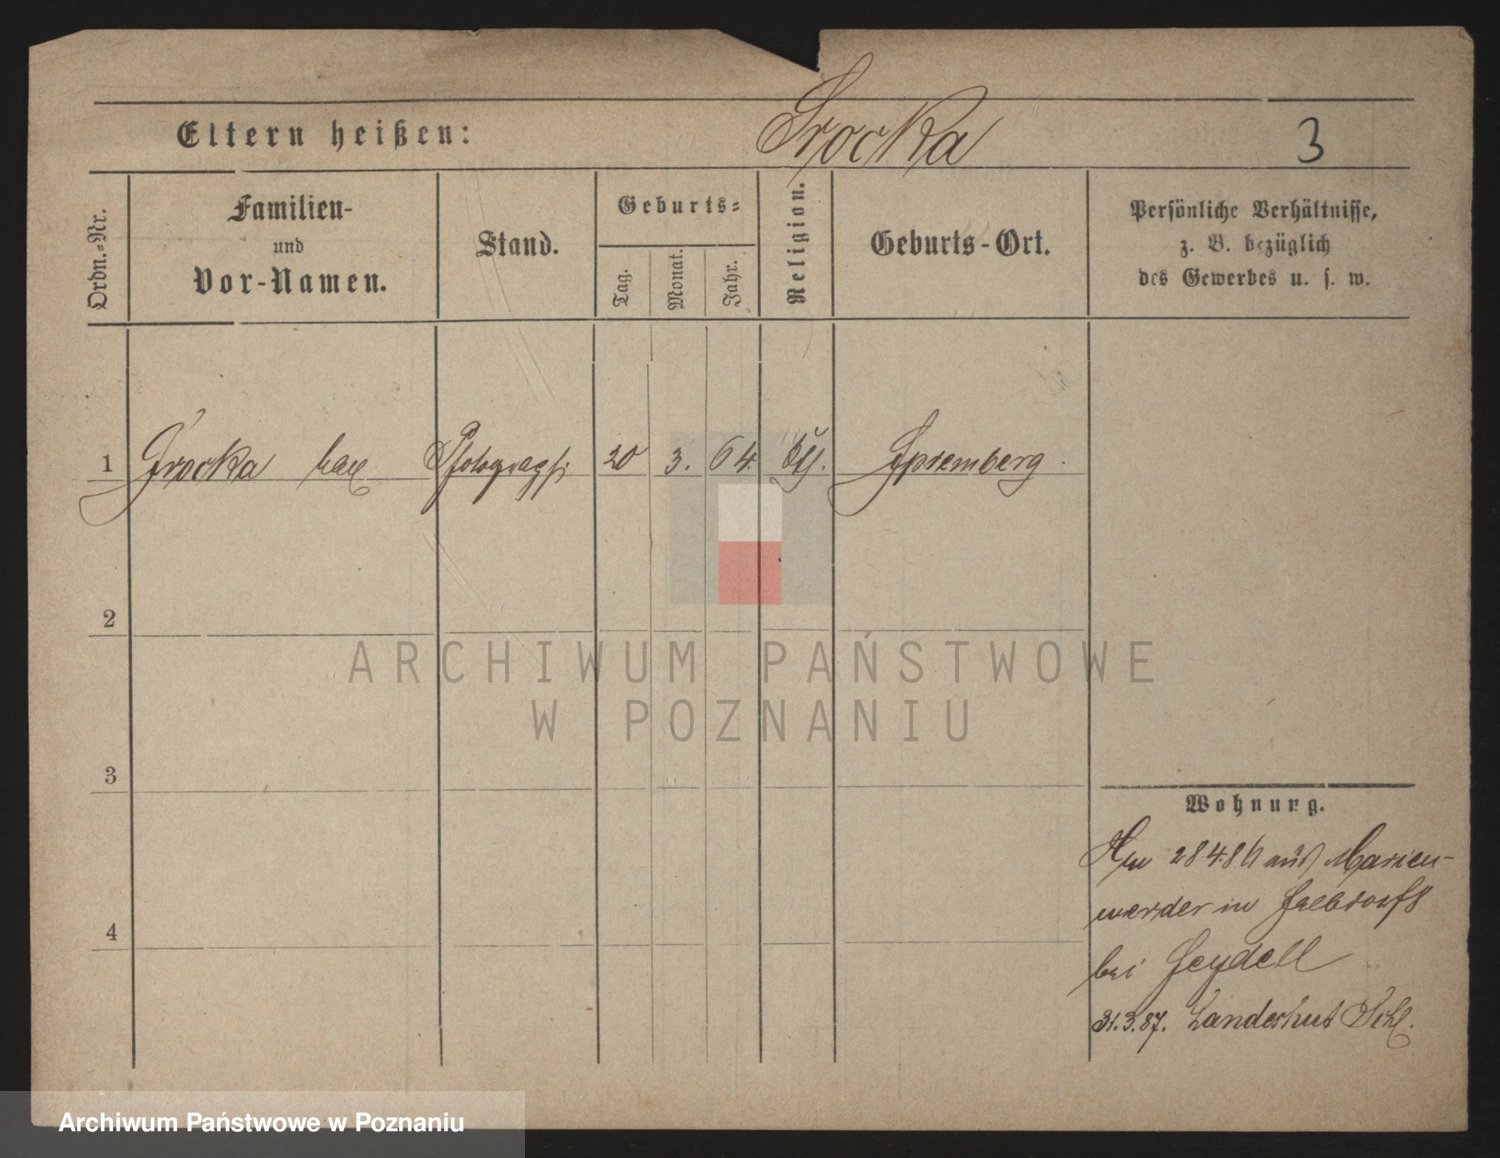 Eltern heißen: Srocka 3
Ordn.-Nr.
Familien-
und
Vor-Namen.
Stand.
Geburts=
Tag.
Monat.
Jahr.
Religion.
Geburts-Ort.
Persönliche Verhältnisse,
z. B. bezüglich
des Gewerbes u. s. w.
1 Srocka Max Photograph 20 3. 64. Spremberg.
2
3
4
Wohnung.
28 4 86 aus Marien-
werder in
bei Heydell
31.3.87. Landeshut Schl.
ARCHIWUM PAŃSTWOWE
W POZNANIU
Archiwum Państwowe w Poznaniu